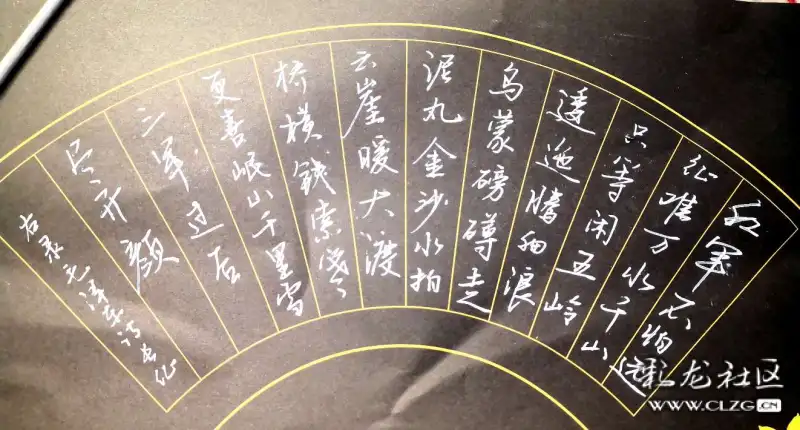 红军不怕远
征难万水千山
只等闲五岭
逶迤腾细浪
乌蒙磅礴走
泥丸金沙水拍
云崖暖大渡
桥横铁索寒
更喜岷山千里雪
三军过后
尽开颜
右录毛泽东诗长征
彩龙社区
WWW.CLZG.CN